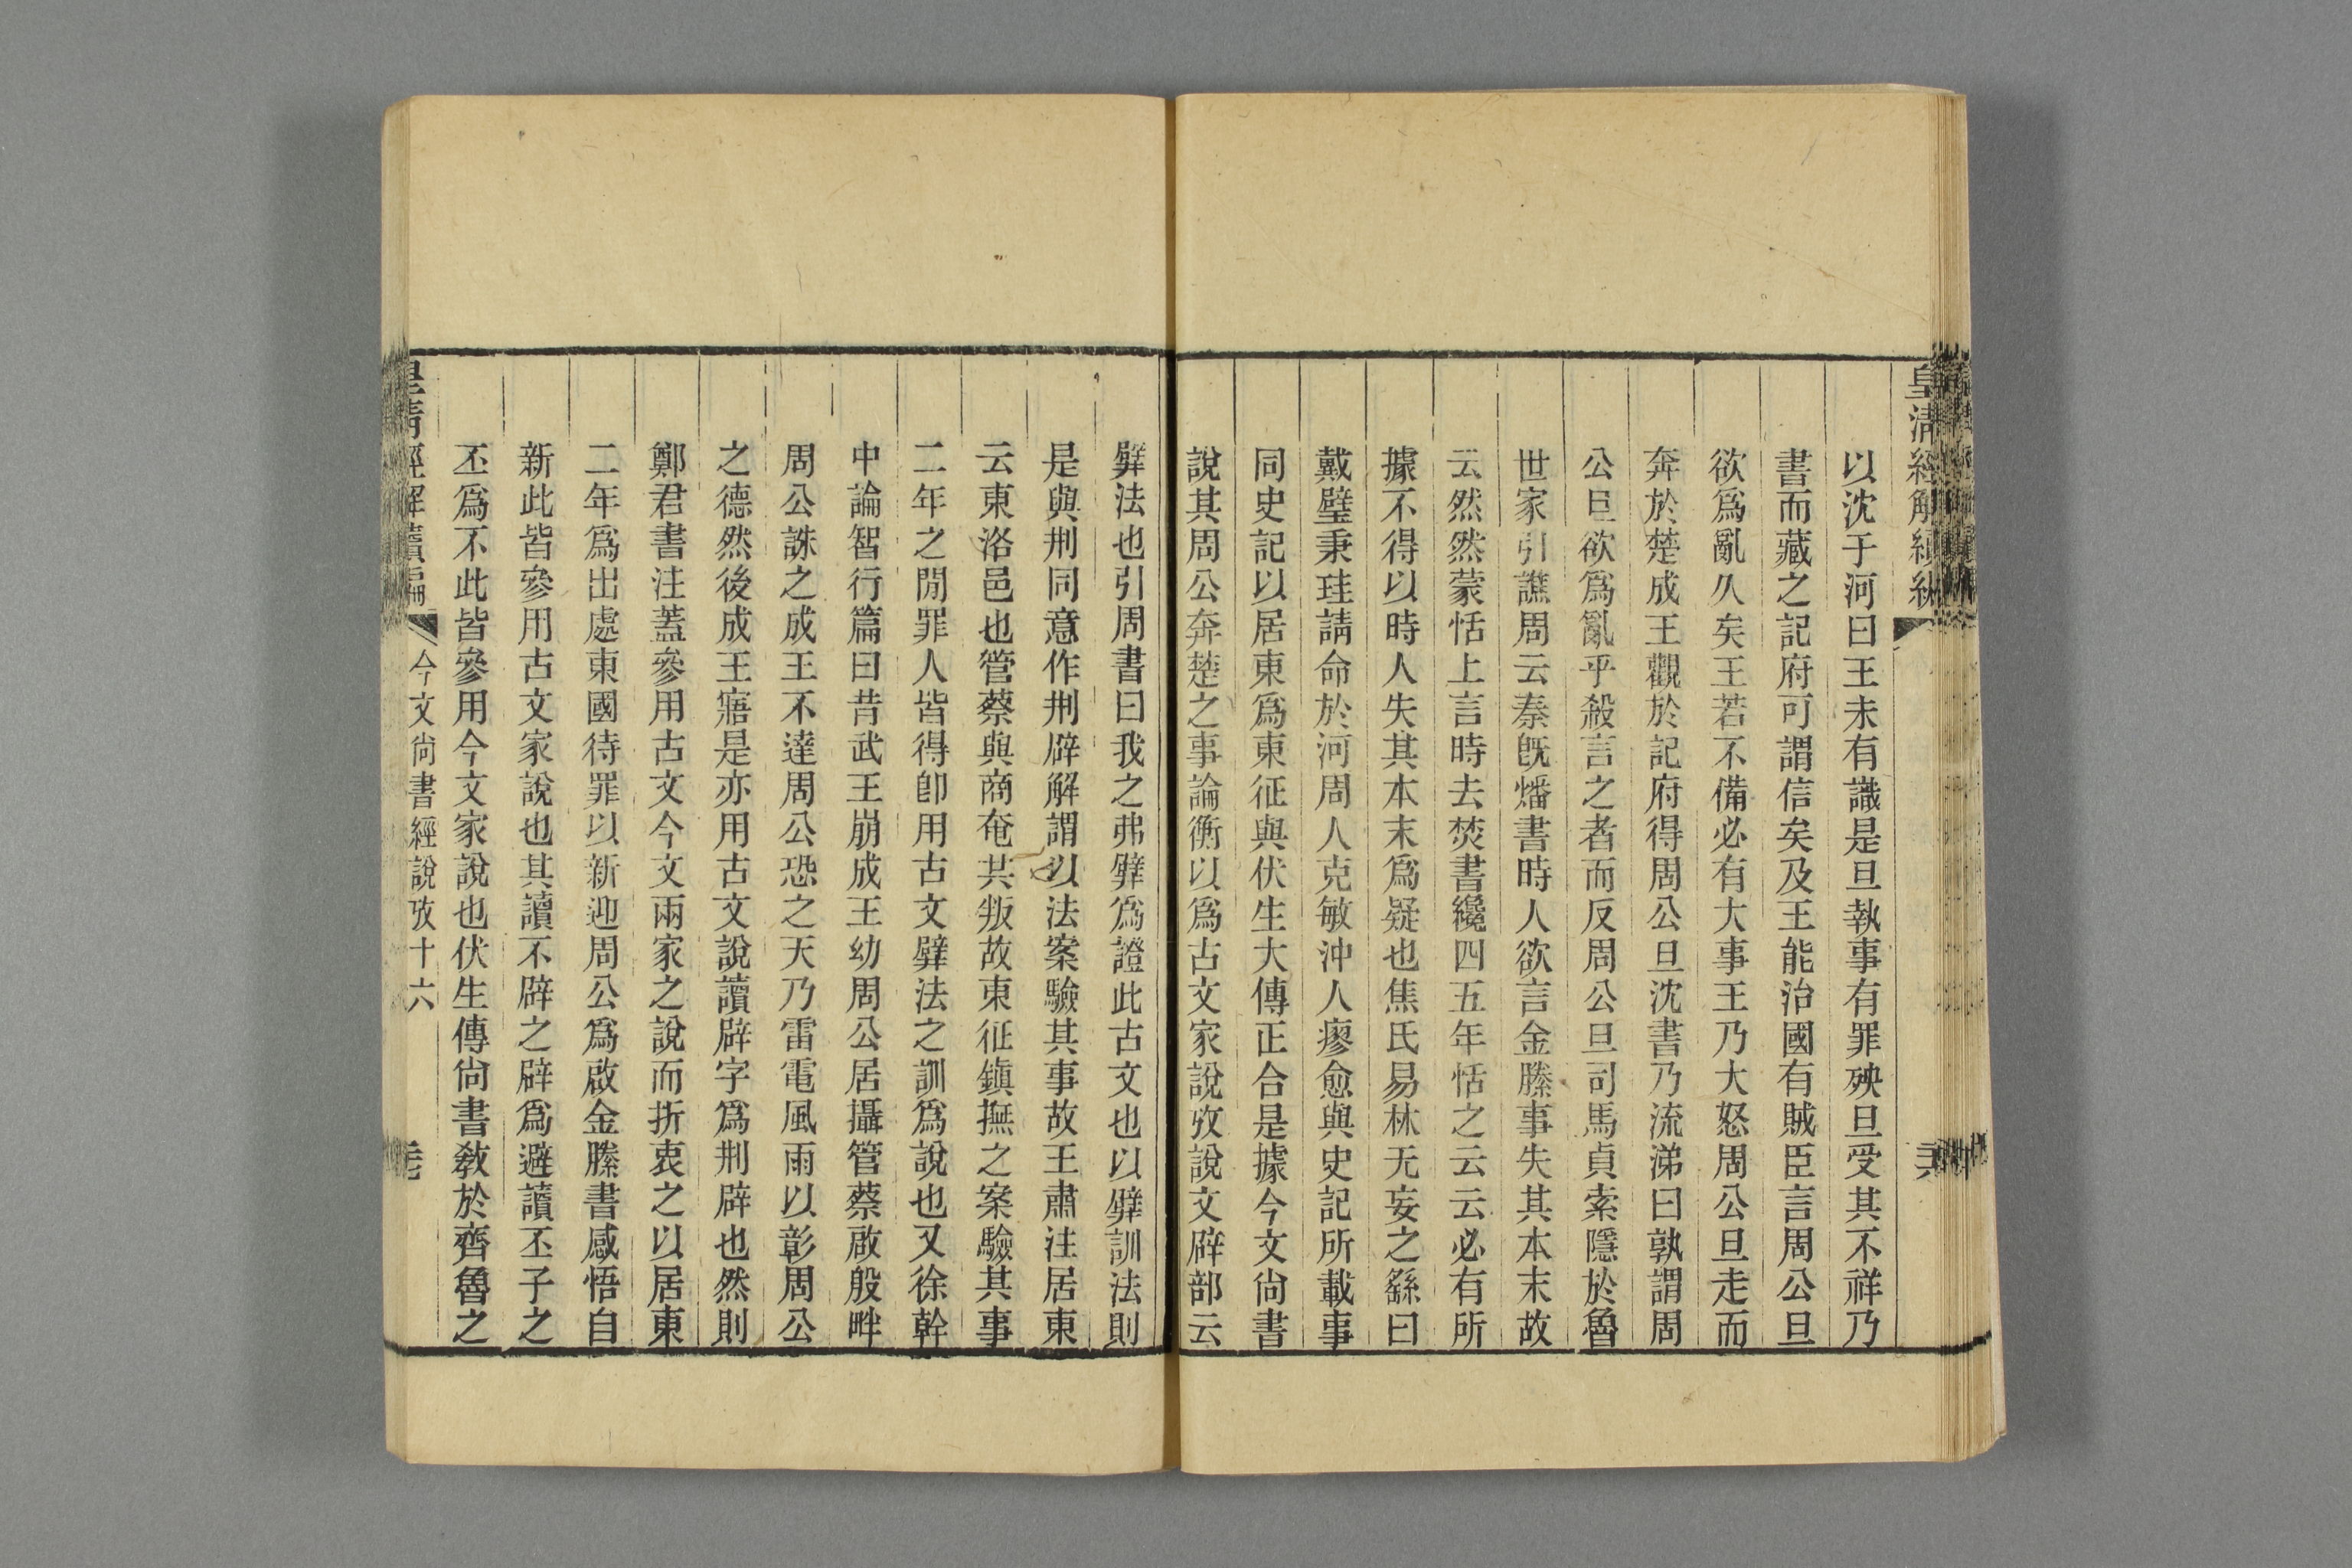 皇清經解續編
以沈于河曰王未有識是旦執事有罪殃旦受其不祥乃
書而藏之記府可謂信矣及王能治國有賊臣言周公旦
欲爲亂久矣王若不備必有大事王乃大怒周公旦走而
奔於楚成王觀於記府得周公旦沈書乃流涕曰孰謂周
公旦欲爲亂乎殺言之者而反周公旦司馬貞索隱於魯
世家引譙周云秦旣燔書時人欲言金縢事失其本末故
云然然蒙恬上言時去焚書纔四五年恬之云云必有所
據不得以時人失其本末爲疑也焦氏易林无妄之繇曰
戴璧秉珪請命於河周人克敏沖人瘳愈與史記所載事
同史記以居東爲東征與伏生大傳正合是據今文尙書
說其周公奔楚之事論衡以爲古文家說攷說文辟部云
㢸法也引周書曰我之弗㢸爲證此古文也以㢸訓法則
是與刑同意作刑辟解謂以法案驗其事故王肅注居東
云東洛邑也管蔡與商奄共叛故東征鎭撫之案驗其事
二年之閒罪人皆得卽用古文㢸法之訓爲說也又徐幹
中論智行篇曰昔武王崩成王幼周公居攝管蔡啟殷畔
周公誅之成王不達周公恐之天乃雷電風雨以彰周公
之德然後成王寤是亦用古文說讀辟字爲刑辟也然則
鄭君書注蓋參用古文今文兩家之說而折衷之以居東
二年爲出處東國待罪以新迎周公爲啟金縢書感悟自
新此皆參用古文家說也其讀不辟之辟爲避讀丕子之
丕爲不此皆參用今文家說也伏生傳尙書敎於齊魯之
皇清經解續編 今文尙書經說攷十六